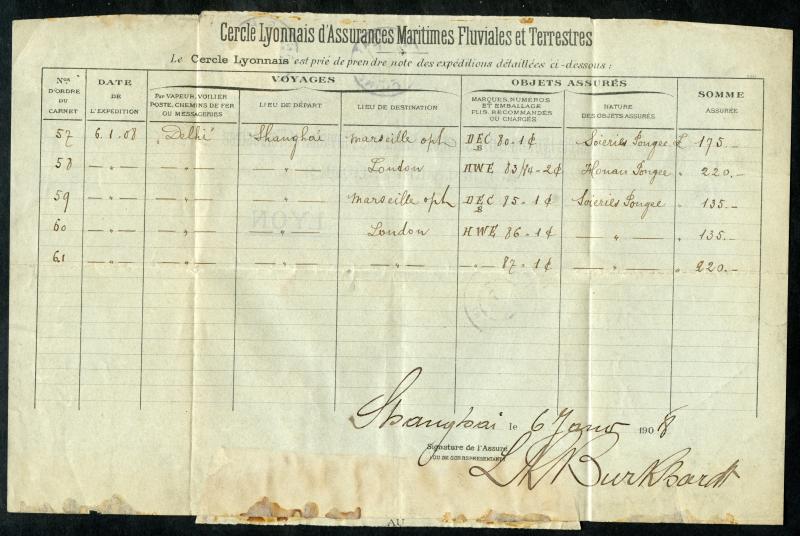 Cercle Lyonnais d'Assurances Maritimes Fluviales et Terrestres
Le Cercle Lyonnais est prié de prendre note des expéditions détaillées ci-dessous :
Nos D'ORDRE DU CARNET
DATE DE L'EXPÉDITION
VOYAGES
PAR VAPEUR, VOILIER POSTE, CHEMINS DE FER OU MESSAGERIES
LIEU DE DÉPART
LIEU DE DESTINATION
OBJETS ASSURÉS
MARQUES, NUMÉROS ET EMBALLAGE PLIS RECOMMANDÉS OU CHARGÉS
NATURE DES OBJETS ASSURÉS
SOMME ASSURÉE
57 6.1.08 "Delhi" Shanghai Marseille opt DEC B 80 - 1¢ Soieries Pongee £ 175.-
58 - " - - " - - " - London HWE 83/84 - 2¢ Honan Pongee " 220.-
59 - " - - " - - " - Marseille opt DEC B 85 - 1¢ Soieries Pongee " 135.-
60 - " - - " - - " - London HWE 86 - 1¢ - " - " 135.-
61 - " - - " - - " - - " - - " - 87 - 1¢ - " - " 220.-
LYON
Shanghai le 6 Janv 1908
Signature de l'Assuré
OU DE SON REPRÉSENTANT
Burkhardt
AU